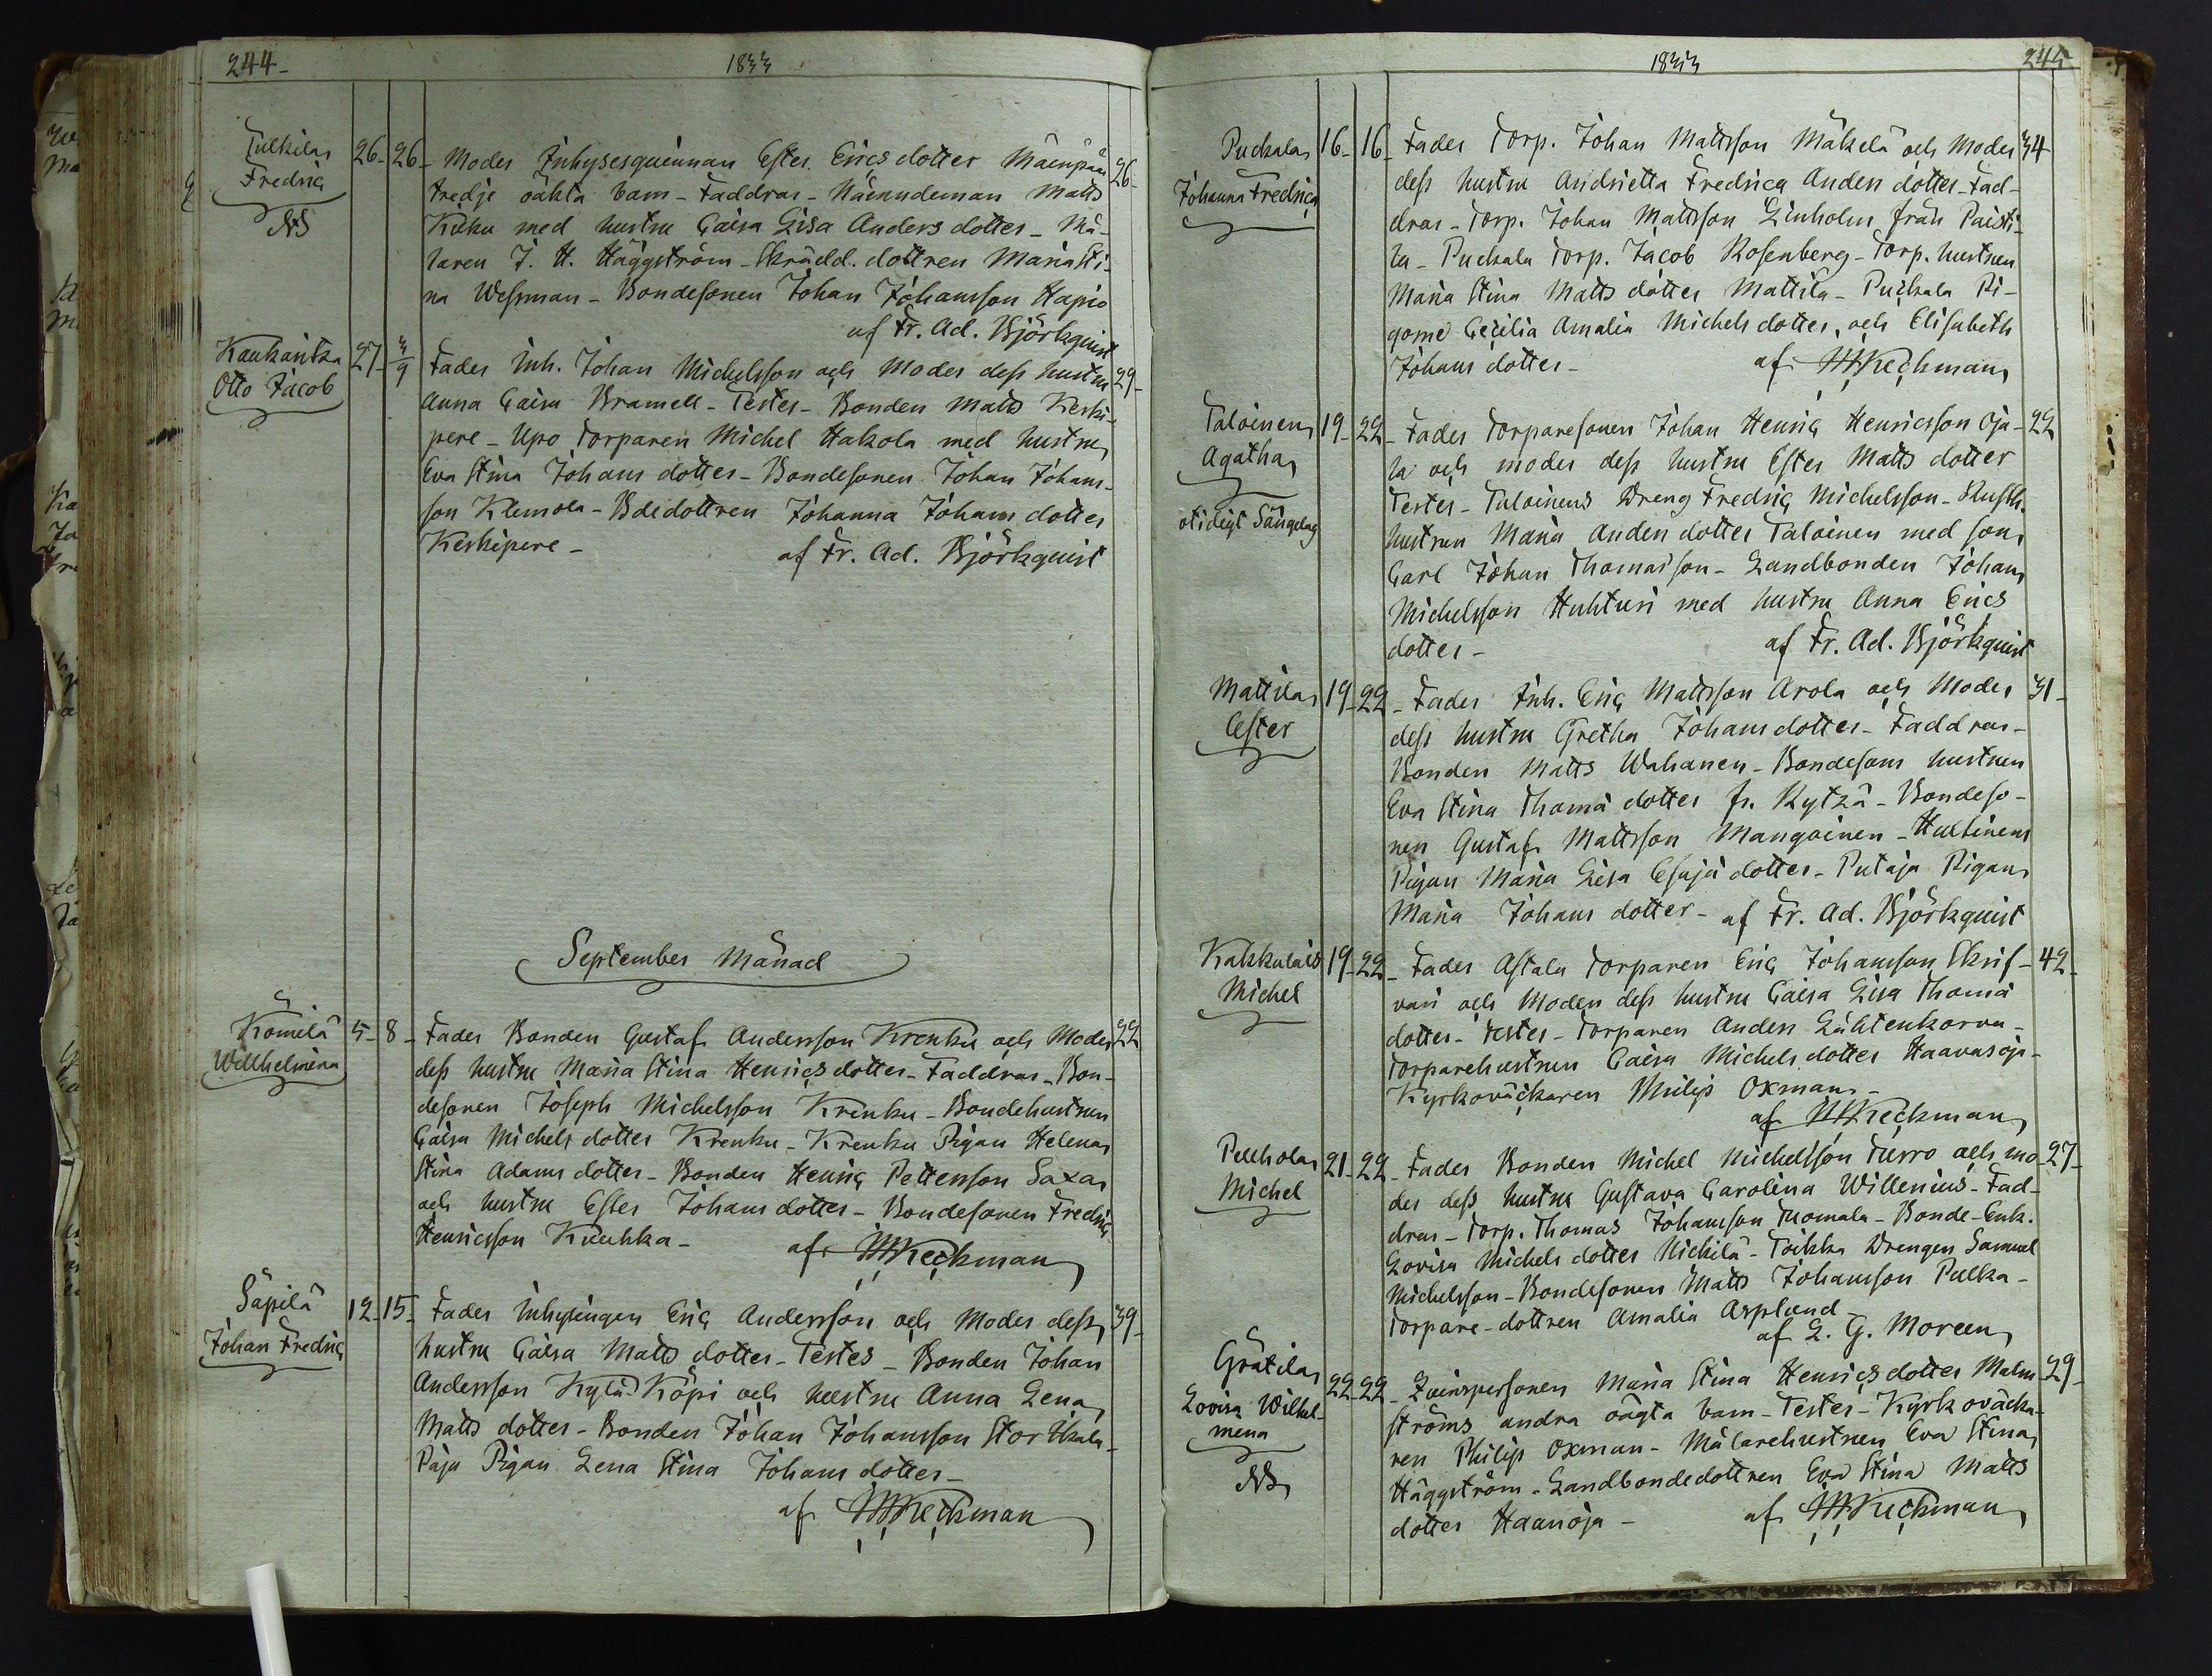 244-
1833
Tulkila
Fredric
NB
26- 26- Moder Inhysesqvinnan Ester Erics dotter Mäenpää 26-
tredje oäkta barn - Faddrar - Nämndeman Matts
Kuku med hustru Caisa Lisa Anders dotter - Må-
laren J. H. Häggström - Skrädd. dottren Maria Sti-
na Wessman - Bondesonen Johan Johansson Hapio
af Fr. Ad. Björkquist
Kaukaritza
Otto Jacob
27- 3/9 Fader Inh. Johan Michelsson och Moder dess hustru 29-
Anna Caisa Bramell - Testes - Bonden Matts Keski-
pere - Upo Torparen Michel Hakola med hustru
Eva Stina Johans dotter - Bondesonen Johan Johans-
son Klemola - Bdedottren Johanna Johans dotter
Keskipere -
af Fr. Ad. Björkquist
September Månad
Komilä
Willhelmina
5- 8- Fader Bonden Gustaf Andersson Krenku och Moder 22
dess hustru Maria Stina Henrics dotter - Faddrar - Bon-
desonen Joseph Michelsson Krenku - Bondehustrun
Caisa Michels dotter Krenku - Krenku Pigan Helena
Stina Adams dotter - Bonden Henric Pettersson Saxa
och hustru Ester Johans dotter - Bondesonen Fredric
Henricsson Kuuhka -
af Keckman
Säpilä
Johan Fredric
12- 15- Fader Inhysingen Eric Andersson och Moder dess 39-
hustru Caisa Matts dotter - Testes - Bonden Johan
Andersson Kylä Köpi och hustru Anna Lena
Matts dotter - Bonden Johan Johansson Stor Ukala -
Paju Pigan Lena Stina Johans dotter -
af Keckman
1833
245
Puckala
Johanna Fredrica
16- 16- Fader Torp. Johan Mattsson Mäkelä och Moder 34
dess hustru Andrietta Fredrica Anders dotter - Fad-
drar - Torp. Johan Mattsson Linholm från Paisti-
la - Puckala Torp. Jacob Rosenberg - Torp. hustrun
Maria Stina Matts dotter Mattila - Puckala Pi-
gorne Cecilia Amalia Michels dotter, och Elisabeth
Johans dotter -
af Keckman
Taloinen
Agatha
otidigt Sänglag
19- 22- Fader Torparesonen Johan Henric Henricsson Oja- 22
la och moder dess hustru Ester Matts dotter
Testes - Taloinens Dreng Fredric Michelsson - Rusth.
hustrun Maria Anders dotter Taloinen med son
Carl Johan Thomasson - Landbonden Johan
Michelsson Huhturi med hustru Anna Erics
dotter -
af Fr. Ad. Björkquist
Mattila
Ester
19- 22- Fader Inh. Eric Mattsson Arola och Moder 31-
dess hustru Gretha Johans dotter - Faddrar -
Bonden Matts Wahanen - Bondesons hustrun
Eva Stina Thomä dotter fr. Kytzä - Bondeso-
nen Gustaf Mattsson Mangoinen - Hultinens
Pigan Maria Lisa Esajä dotter - Putaja Pigan
Maria Johans dotter - af Fr. Ad. Björkquist
Kakkulais
Michel
19- 22- Fader Astala Torparen Eric Johansson Skrif- 42-
vari och Moder dess hustru Caisa Lisa Thomä
dotter - Testes - Torparen Anders Lähtenkorva -
Torparehustrun Caisa Michels dotter Haavasoja -
Kyrkoväckaren Philip Oxman -
af Keckman
Pellhola
Michel
21- 22- Fader Bonden Michel Michelsson Turro och mo- 27-
der dess hustru Gustava Carolina Willenius - Fad-
drar - Torp. Thomas Johansson Tuomala - Bonde-Enk.
Lovisa Michels dotter Nickilä - Toikka Drengen Samuel
Michelsson - Bondesonen Matts Johansson Pelka -
Torpare-dottren Amalia Asplund -
af L. G. Moreen
Grätila
Lovisa Wilhel-
mena
NB
22- 22- Qvinspersonen Maria Stina Henrics dotter Malm- 29-
ströms andra oägta barn - Testes - Kyrkoväcka-
ren Philip Oxman - Målarehustrun Eva Stina
Häggström - Landbondedottren Eva Stina Matts
dotter Haanoja -
af Keckman